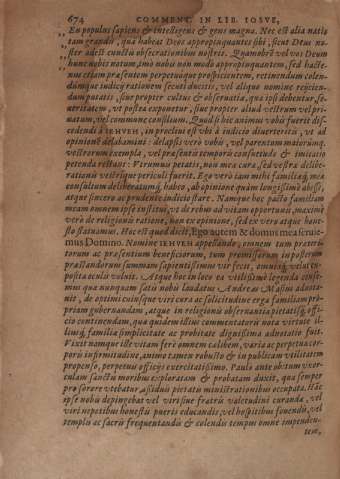 674 COMMENT. IN LIB. IOSVE,
En populus sapiens & intelligens & gens magna. Nec est alia natio
tam grandis, quæ habeat Deos appropinquantes sibi, sicut Deus no-
ster adest cunctis obsecrationibus nostris. Quamobrē vel vos Deum
hunc nobis natum, imò nobis non modò appropinquantem, sed hacte-
nus etiam præsentem perpetuoque prospicientem, retinendum colen-
dumque iudicij rationem secuti ducitis, vel alioque nomine reijcien-
dum putatis, siue propter cultus & obseruantiæ, quæ ipsi debentur, se-
ueritatem, vt postea exponetur, siue propter aliud vestrum vel pri-
uatum, vel commune consilium. Quod si hic animus vobis fuerit dis-
cedendi à IEHVEH, in procliui est vbi à iudicio diuerteritis, vt ad
opinionē delabamini: delapsis verò vobis, vel parentum maiorumq́;
vestrorum exempla, vel præsentis temporis consuetudo & imitatio
petenda restant: Vtrumus petatis, non mea cura, sed vestra delibe-
rationis vestrique periculi fuerit. Ego verò iam mihi familiæq́; meæ
consultum deliberatumq́; habeo, ab opinione quàm longissimè abesse,
atque sincero ac prudente iudicio stare. Namque hoc pacto familiam
meam omnem ipse institui, vt de rebus ad vitam opportunis, maximè
verò de religionis ratione, non ex opinione, sed ex vero atque hone-
sto statuamus. Hoc est quod dicit, Ego autem & domus mea seruie-
mus Domino. Nomine IEHVEH appellando, omnem tum præteri-
torum ac præsentium beneficiorum, tum promissorum in posterum
præstandorum summam sapientissimus vir fecit, omniumq́; velut ex-
posita oculis voluit. Atque hoc in loco ex vtilissimæ legenda consi-
mus quæ nunquam satis nobis laudatus Andreas Masius adnota-
uit, de optimi cuiusque viri cura ac sollicitudine erga familiam pro-
priam gubernandam, atque in religionis obseruantia pietatisq́; offi-
cio continendam, qua quidem illius commentatoris nota virtute il-
liusq́; familia simplicitate ac probitate dignissima adnotatio fuit.
Vixit namque ille vitam ferè omnem calibem, varia ac perpetua cor-
poris infirmitudine, animo tamen robusto & in publicam vtilitatem
propenso, perpetuis officijs exercitatissimo. Paulò ante obitum vxor-
culam sanctis moribus exploratam & probatam duxit, quæ semper
pro sorore vtebatur, assiduis pietatis ministrationibus occupata. Hāc
ipse nobis depingebat vel viri siue fratris valetudini curanda, vel
viri nepotibus honestis pueris educandis, vel hospitibus fouendis, vel
templis ac sacris frequentandis & colendis tempus omne impenden-
tem,